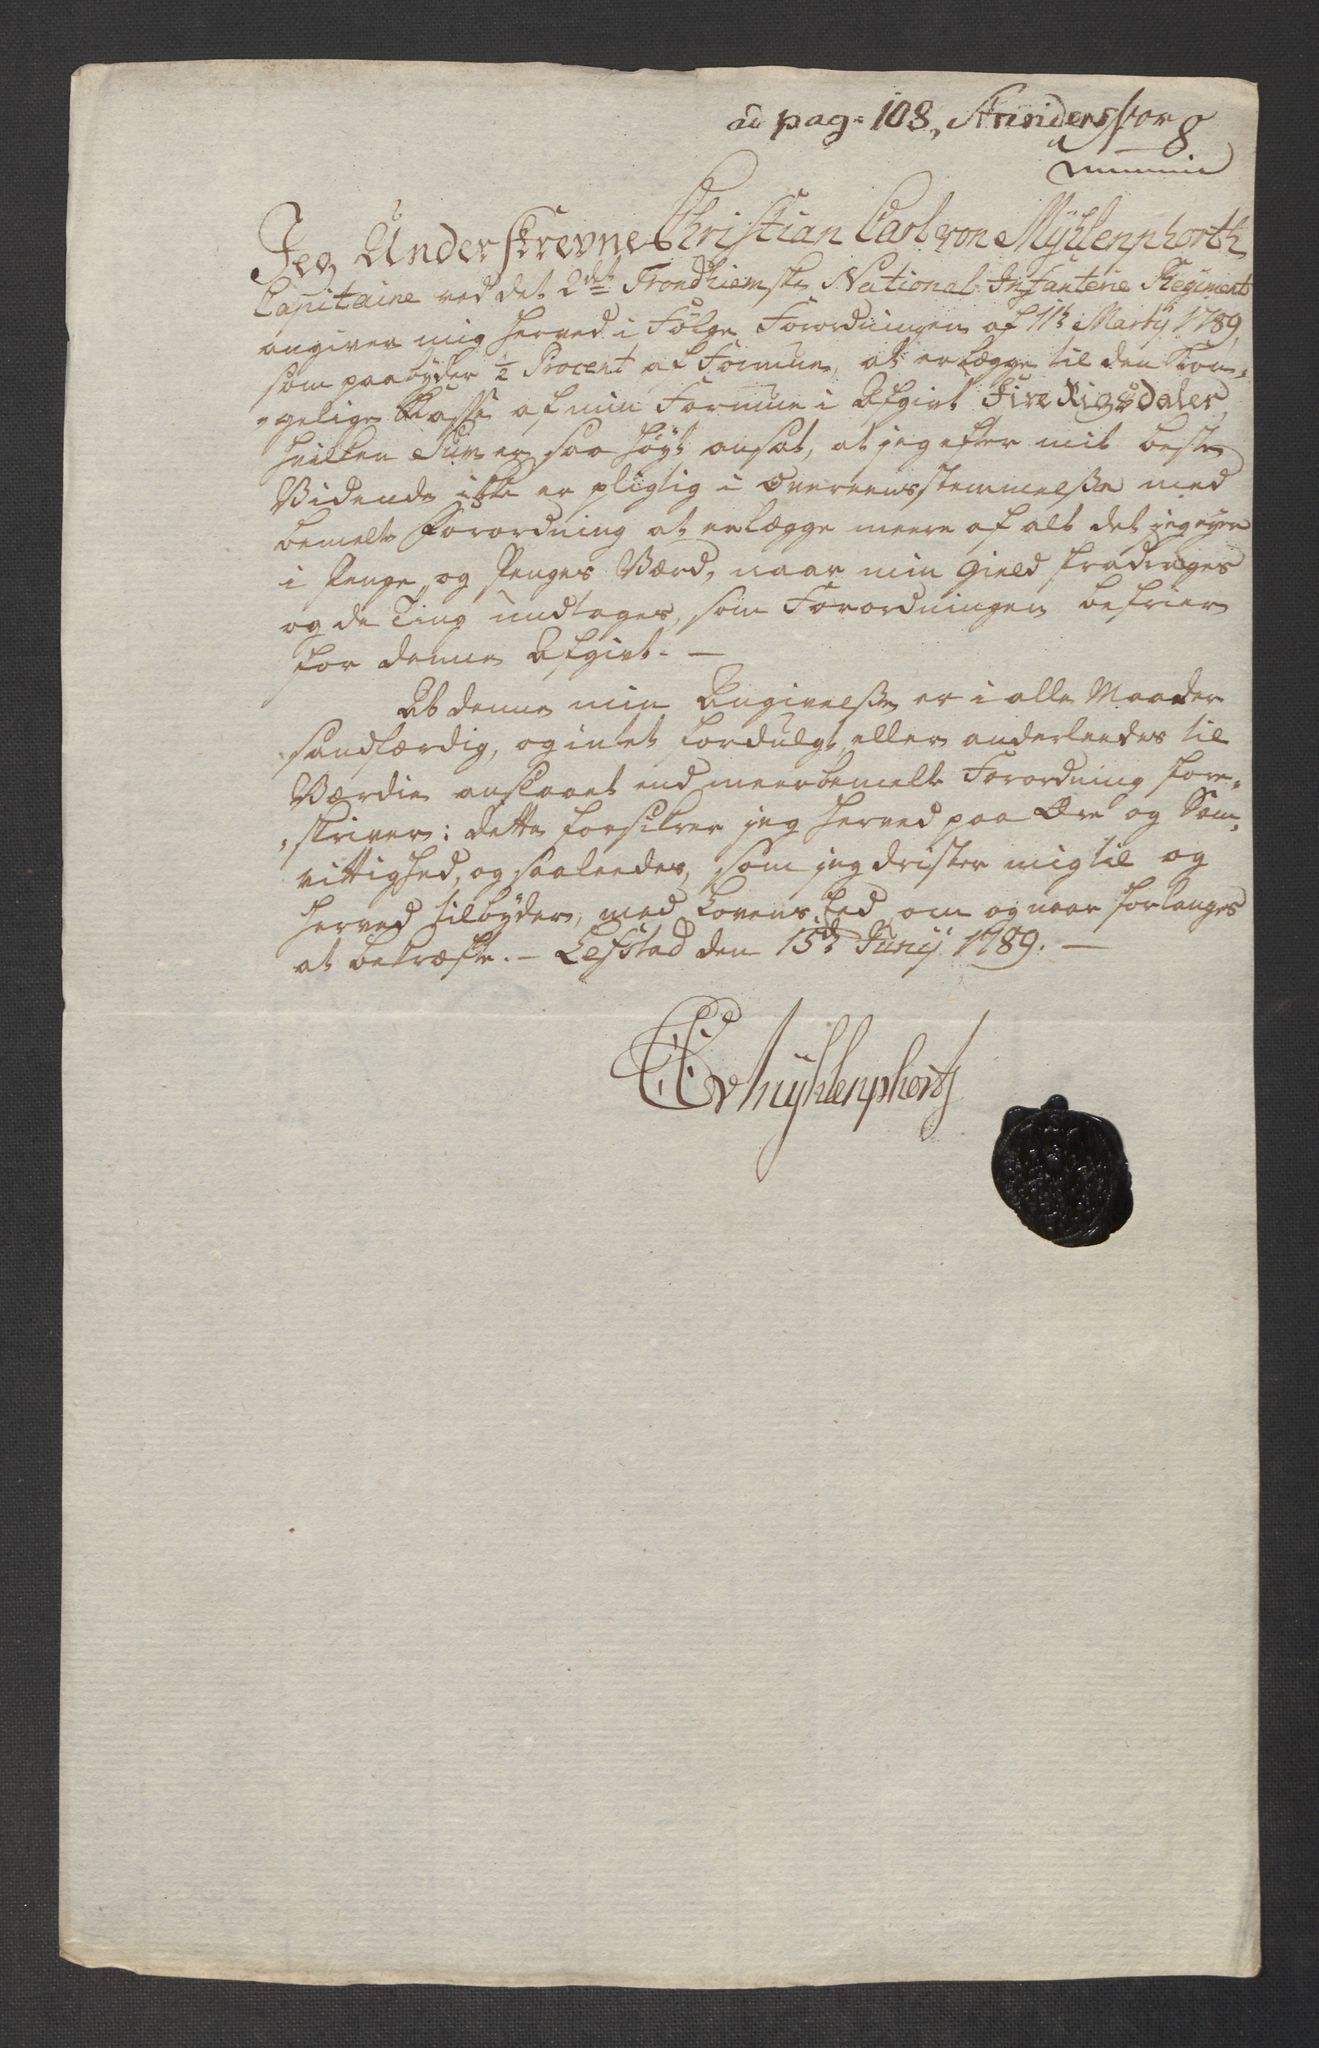 ad pag: 108, Strindens
Jeg Underskrevne Christian Carl von Mÿhlenphorth
Capitaine ved det 2det Trondhiemske National Infanterie Regiment
angiver mig herved i Følge Forordningen af 11te Martÿ 1789,
som paabÿder ½ Procent af Formue, at erlægge til den Kon„
„gelige Kasse af min Formue i Afgivt Fire Rigsdaler,
hvilken Sum er saa høÿt ansat, at jeg efter mit beste
Vidende ikke er pligtig i Overeensstemmelse med
bemelte Forordning at erlægge meere af alt det jeg eÿer
i Penge og Penges Værd, naar min Gield fradrages
og de Ting undtages, som Forordningen befrier
for denne Afgivt. —
At denne min Angivelse er i alle Maader
sandfærdig, og intet fordulgt, eller anderleedes til
Værdie anslaaet end meerbemelte Forordning fore„
„skriver: dette forsikrer jeg herved paa Ære og Sam„
vittighed, og saaleedes, som jeg drister mig til og
herved tilbÿder, med Lovens Eed, om og naar forlanges
at bekræfte. — Lefstad den 15de Junÿ 1789. —
CCvMÿhlenphorth